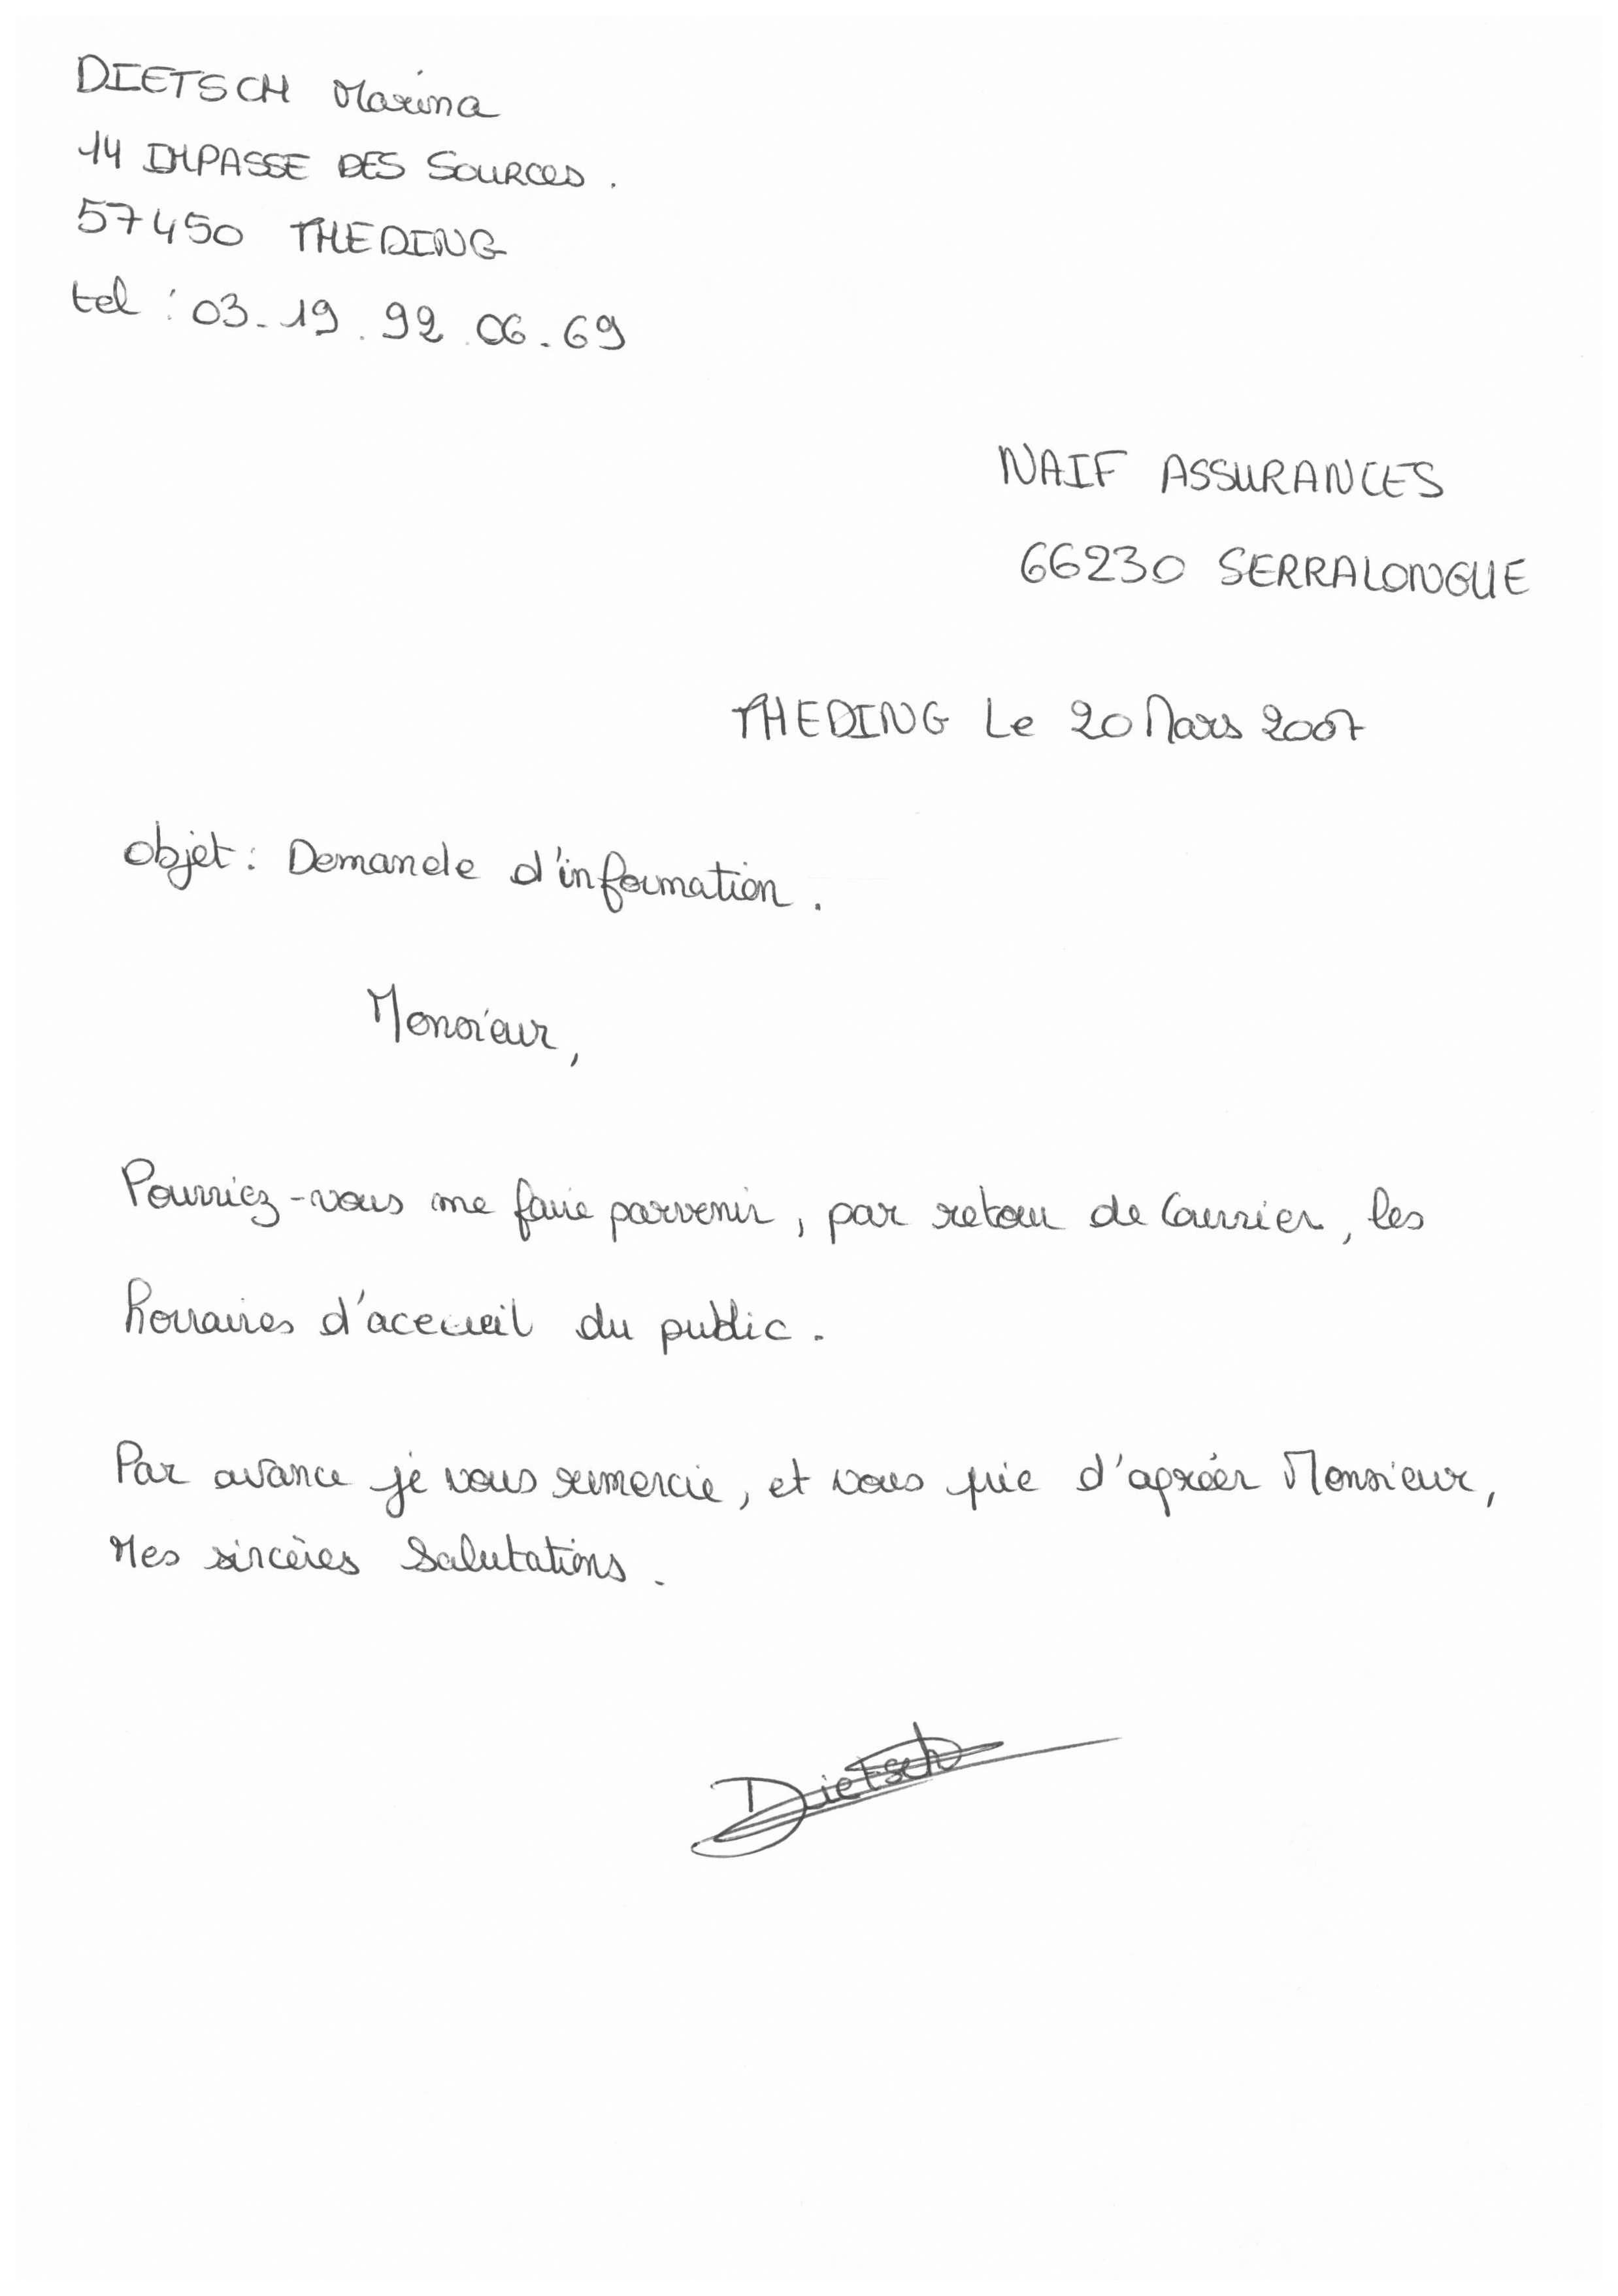 DIETSCH Marina
14 IMPASSE DES SOURCES.
57450 THEDING
tel : 03-19.92.06.69
NAIF ASSURANCES
66230 SERRALONGUE
THEDING Le 20 Mars 2007
Objet : Demande d'information.
Monsieur,
Pourriez-vous me faire parvenir, par retour de Courrier, les
horraires d'acceuil du public.
Par avance je vous remercie, et vous prie d'agréer Monsieur,
Mes sincères Salutations.
Dietsch